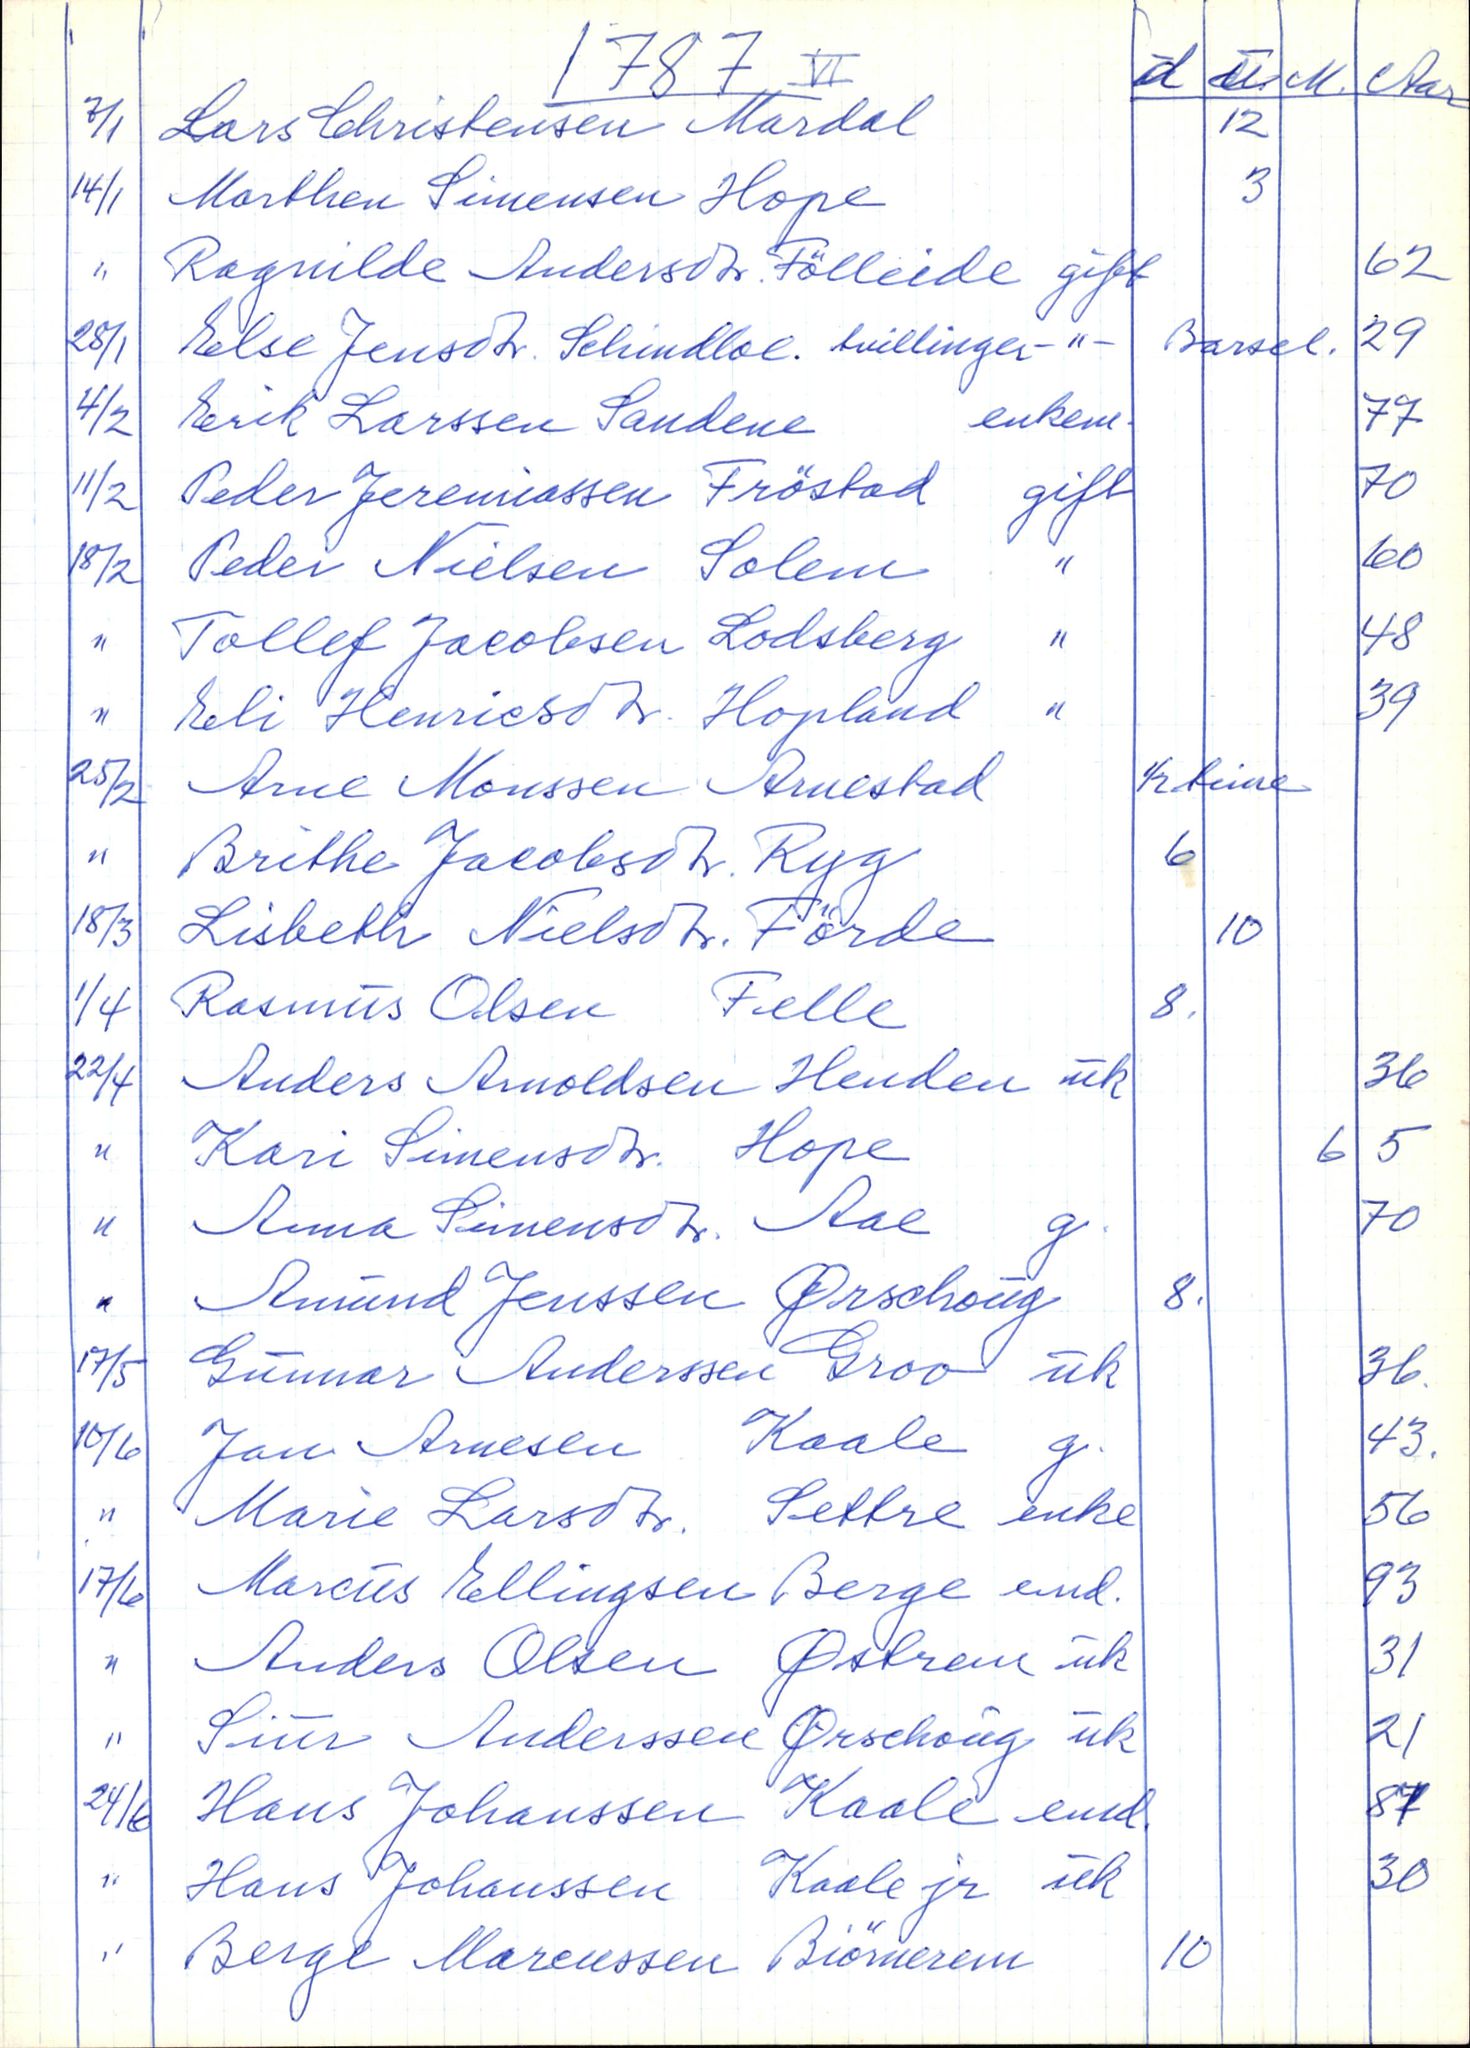 1787 VI d U. M. Aar
7/1 Lars Christensen Mardal 12
14/1 Marthen Simensen Hope 3
" Ragnilde Andersdtr. Fölleide gift 62
28/1 Else Jensdtr. Schindloe. tvillinger -"- Barsel. 29
4/2 Erik Larssen Sandene enkem. 77
11/2 Peder Jeremiassen Fröstad gift 70
18/2 Peder Nielsen Solem " 60
" Tollef Jacobsen Lodsberg " 48
" Eli Henricsdtr. Hopland " 39
25/2 Arne Monssen Arnestad 1/2 time
" Brithe Jacobsdtr. Ryg 6
18/3 Lisbeth Nielsdtr. Förde 10
1/4 Rasmus Olsen Felle 8.
22/4 Anders Arnoldsen Henden uk 36
" Kari Simensdtr. Hope 6 5
" Anna Simensdtr. Aae g. 70
" Amund Jenssen Ørschoug 8.
17/5 Gunnar Anderssen Groo uk 36.
10/6 Jan Arnesen Kaale g. 43.
" Marie Larsdtr. Settre enke 56
17/6 Marcus Ellingsen Berge emd. 93
" Anders Olsen Østrem uk 31
" Siur Anderssen Ørschoug uk 21
24/6 Hans Johanssen Kaale emd. 87
" Hans Johanssen Kaale jr uk 30
" Berge Marcussen Biörnerem 10